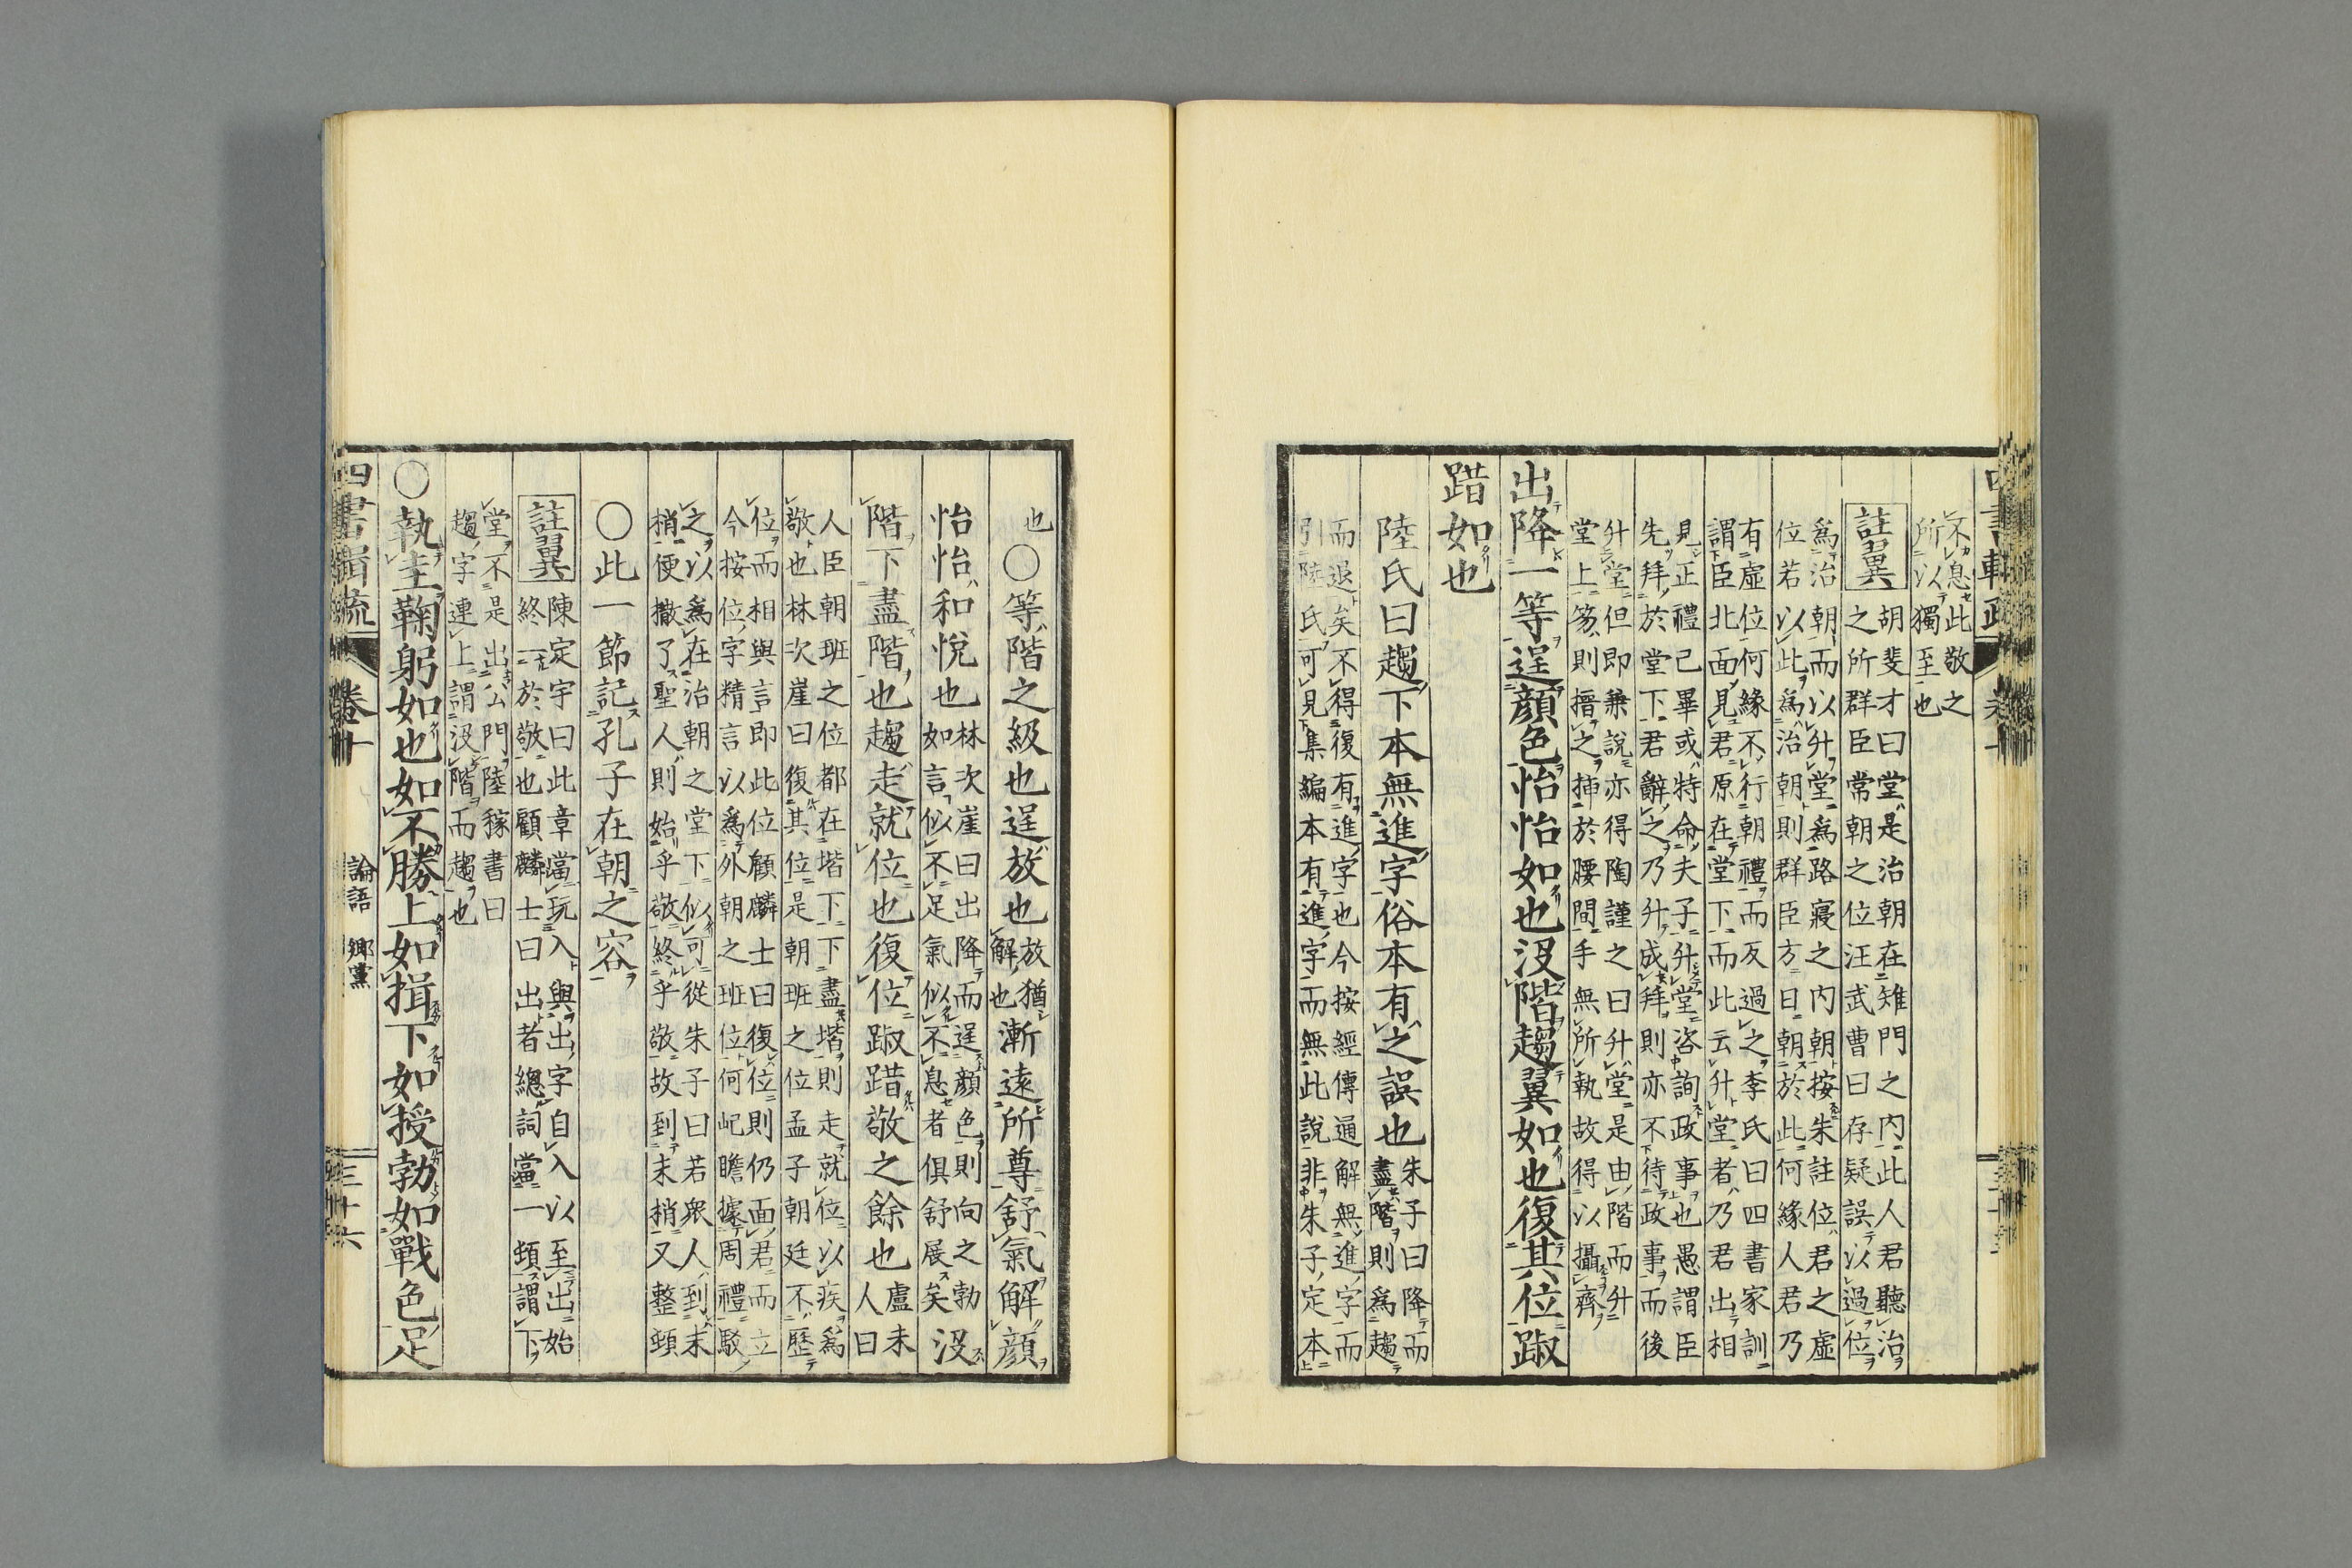 不息此敬之
所以獨至也
註翼
胡斐才曰堂是治朝在雉門之内此人君聽治
之所群臣常朝之位汪武曹曰存疑誤以過位
爲治朝而以升堂爲路寢之内朝按朱註位君之虛
位若以此爲治朝則群臣方日朝於此何緣人君乃
有虛位何緣不行朝禮而反過之李氏曰四書家訓
謂臣北面見君原在堂下而此云升堂者乃君出相
見正禮已畢或特命夫子升堂咨詢政事也愚謂臣
先拜於堂下君辭之乃升成拜則亦不待政事而後
升堂但即兼說亦得陶謹之曰升堂是由階而升
堂上笏則搢之揷於腰間手無所執故得以攝齊
出降一等逞顏色怡怡如也沒階趨翼如也復其位踧
踖如也
陸氏曰趨下本無進字俗本有之誤也
朱子曰降而
盡階則爲趨
而退矣不得復有進字也今按經傳通解無進字而
引陸氏可見集編本有進字而無此說非朱子定本
也○等階之級也逞放也
放猶
解也
漸遠所尊舒氣解顏
怡怡和悅也
林次崖曰出降而逞顏色則向之勃
如言似不足氣似不息者俱舒展矣
沒
階下盡階也趨走就位也復位踧踖敬之餘也
盧未
人曰
人臣朝班之位都在堦下下盡堦則走就位以疾爲
敬也林次崖曰復其位是朝班之位孟子朝廷不歷
位而相與言即此位顧麟士曰復位則仍面君而立
今按位字精言以爲外朝之班位何屺瞻據周禮駁
之以爲在治朝之堂下似可從朱子曰若衆人到末
梢便撒了聖人則始乎敬終乎敬故到末梢又整頓
○此一節記孔子在朝之容
註翼
陳定宇曰此章當玩入與出字自入以至出始
終一於敬也顧麟士曰出者總詞當一頓謂下
堂不是出公門陸稼書曰
趨字連上謂沒階而趨也
○執圭鞠躬如也如不勝上如揖下如授勃如戰色足
卷十
論語 鄉黨
三十六